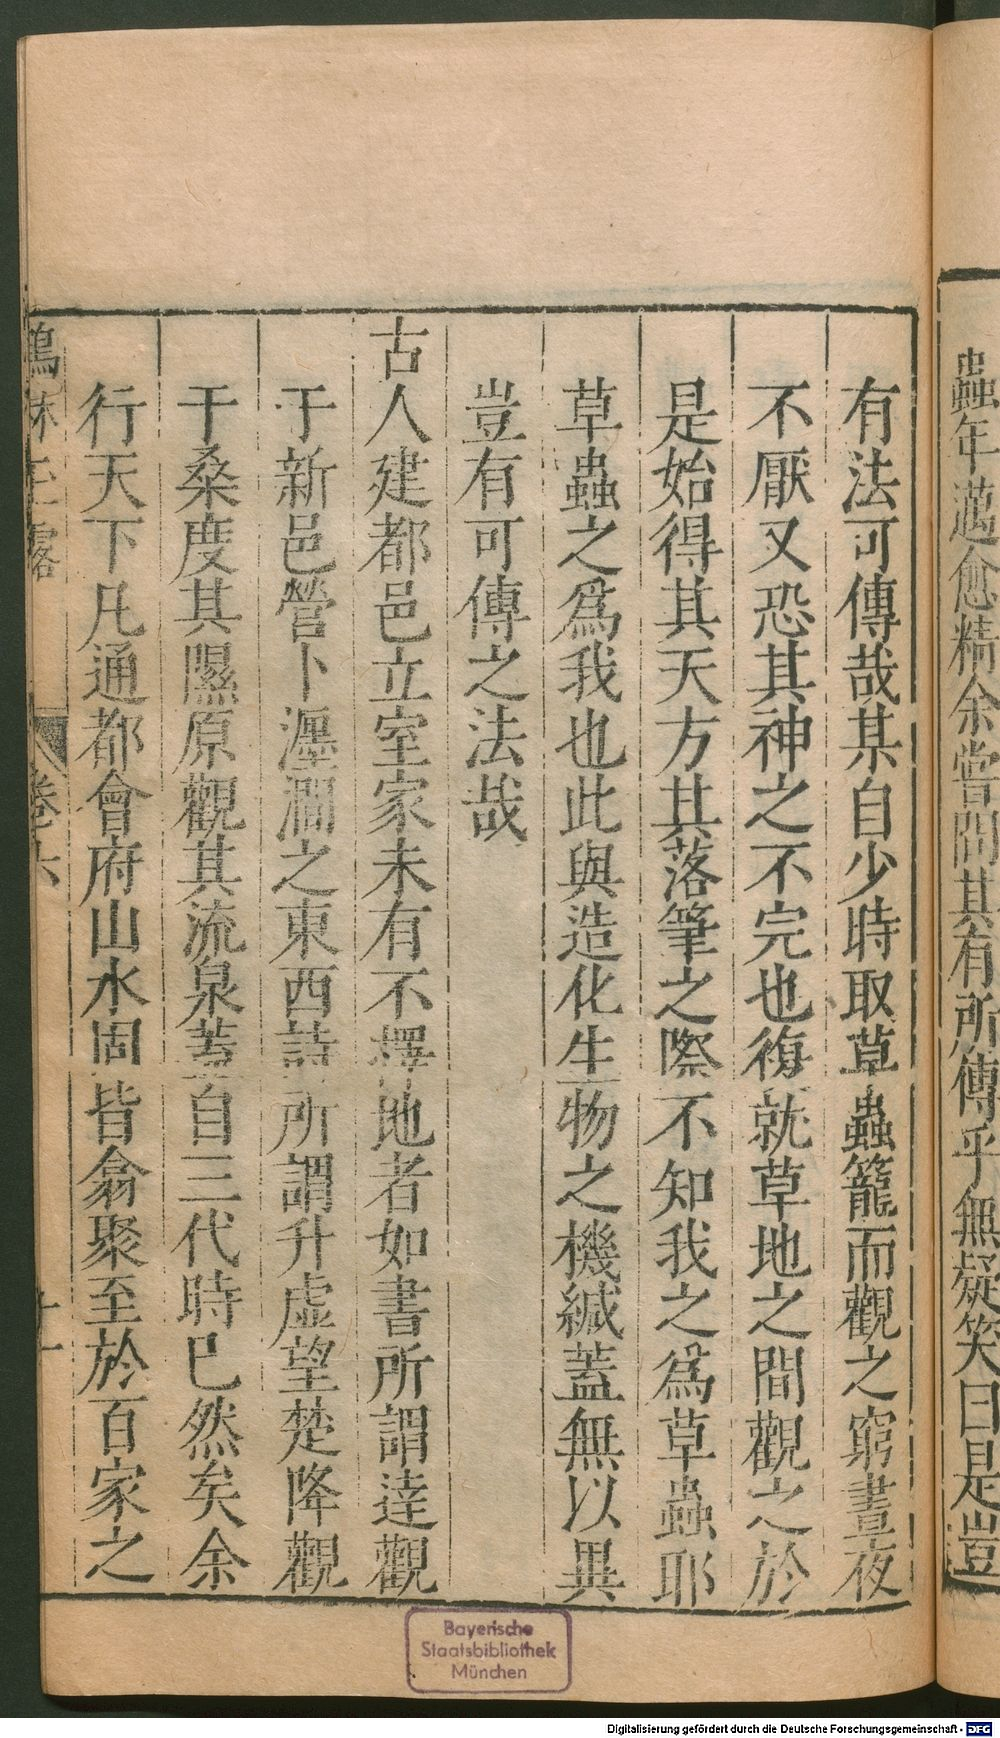 蟲年邁愈精余嘗問其有所傳乎無疑笑曰是豈
有法可傳哉某自少時取草蟲籠而觀之窮晝夜
不厭又恐其神之不完也復就草地之間觀之於
是始得其天方其落筆之際不知我之爲草蟲耶
草蟲之爲我也此與造化生物之機緘蓋無以異
豈有可傳之法哉
古人建都邑立室家未有不擇地者如書所謂達觀
于新邑營卜瀍澗之東西詩所謂升虛望楚降觀
于桑度其隰原觀其流泉蓋自三代時已然矣余
行天下凡通都會府山水固皆翕聚至於百家之
鶴林玉露
卷六
十一
Bayerische
Staatsbibliothek
München
Digitalisierung gefördert durch die Deutsche Forschungsgemeinschaft - DFG